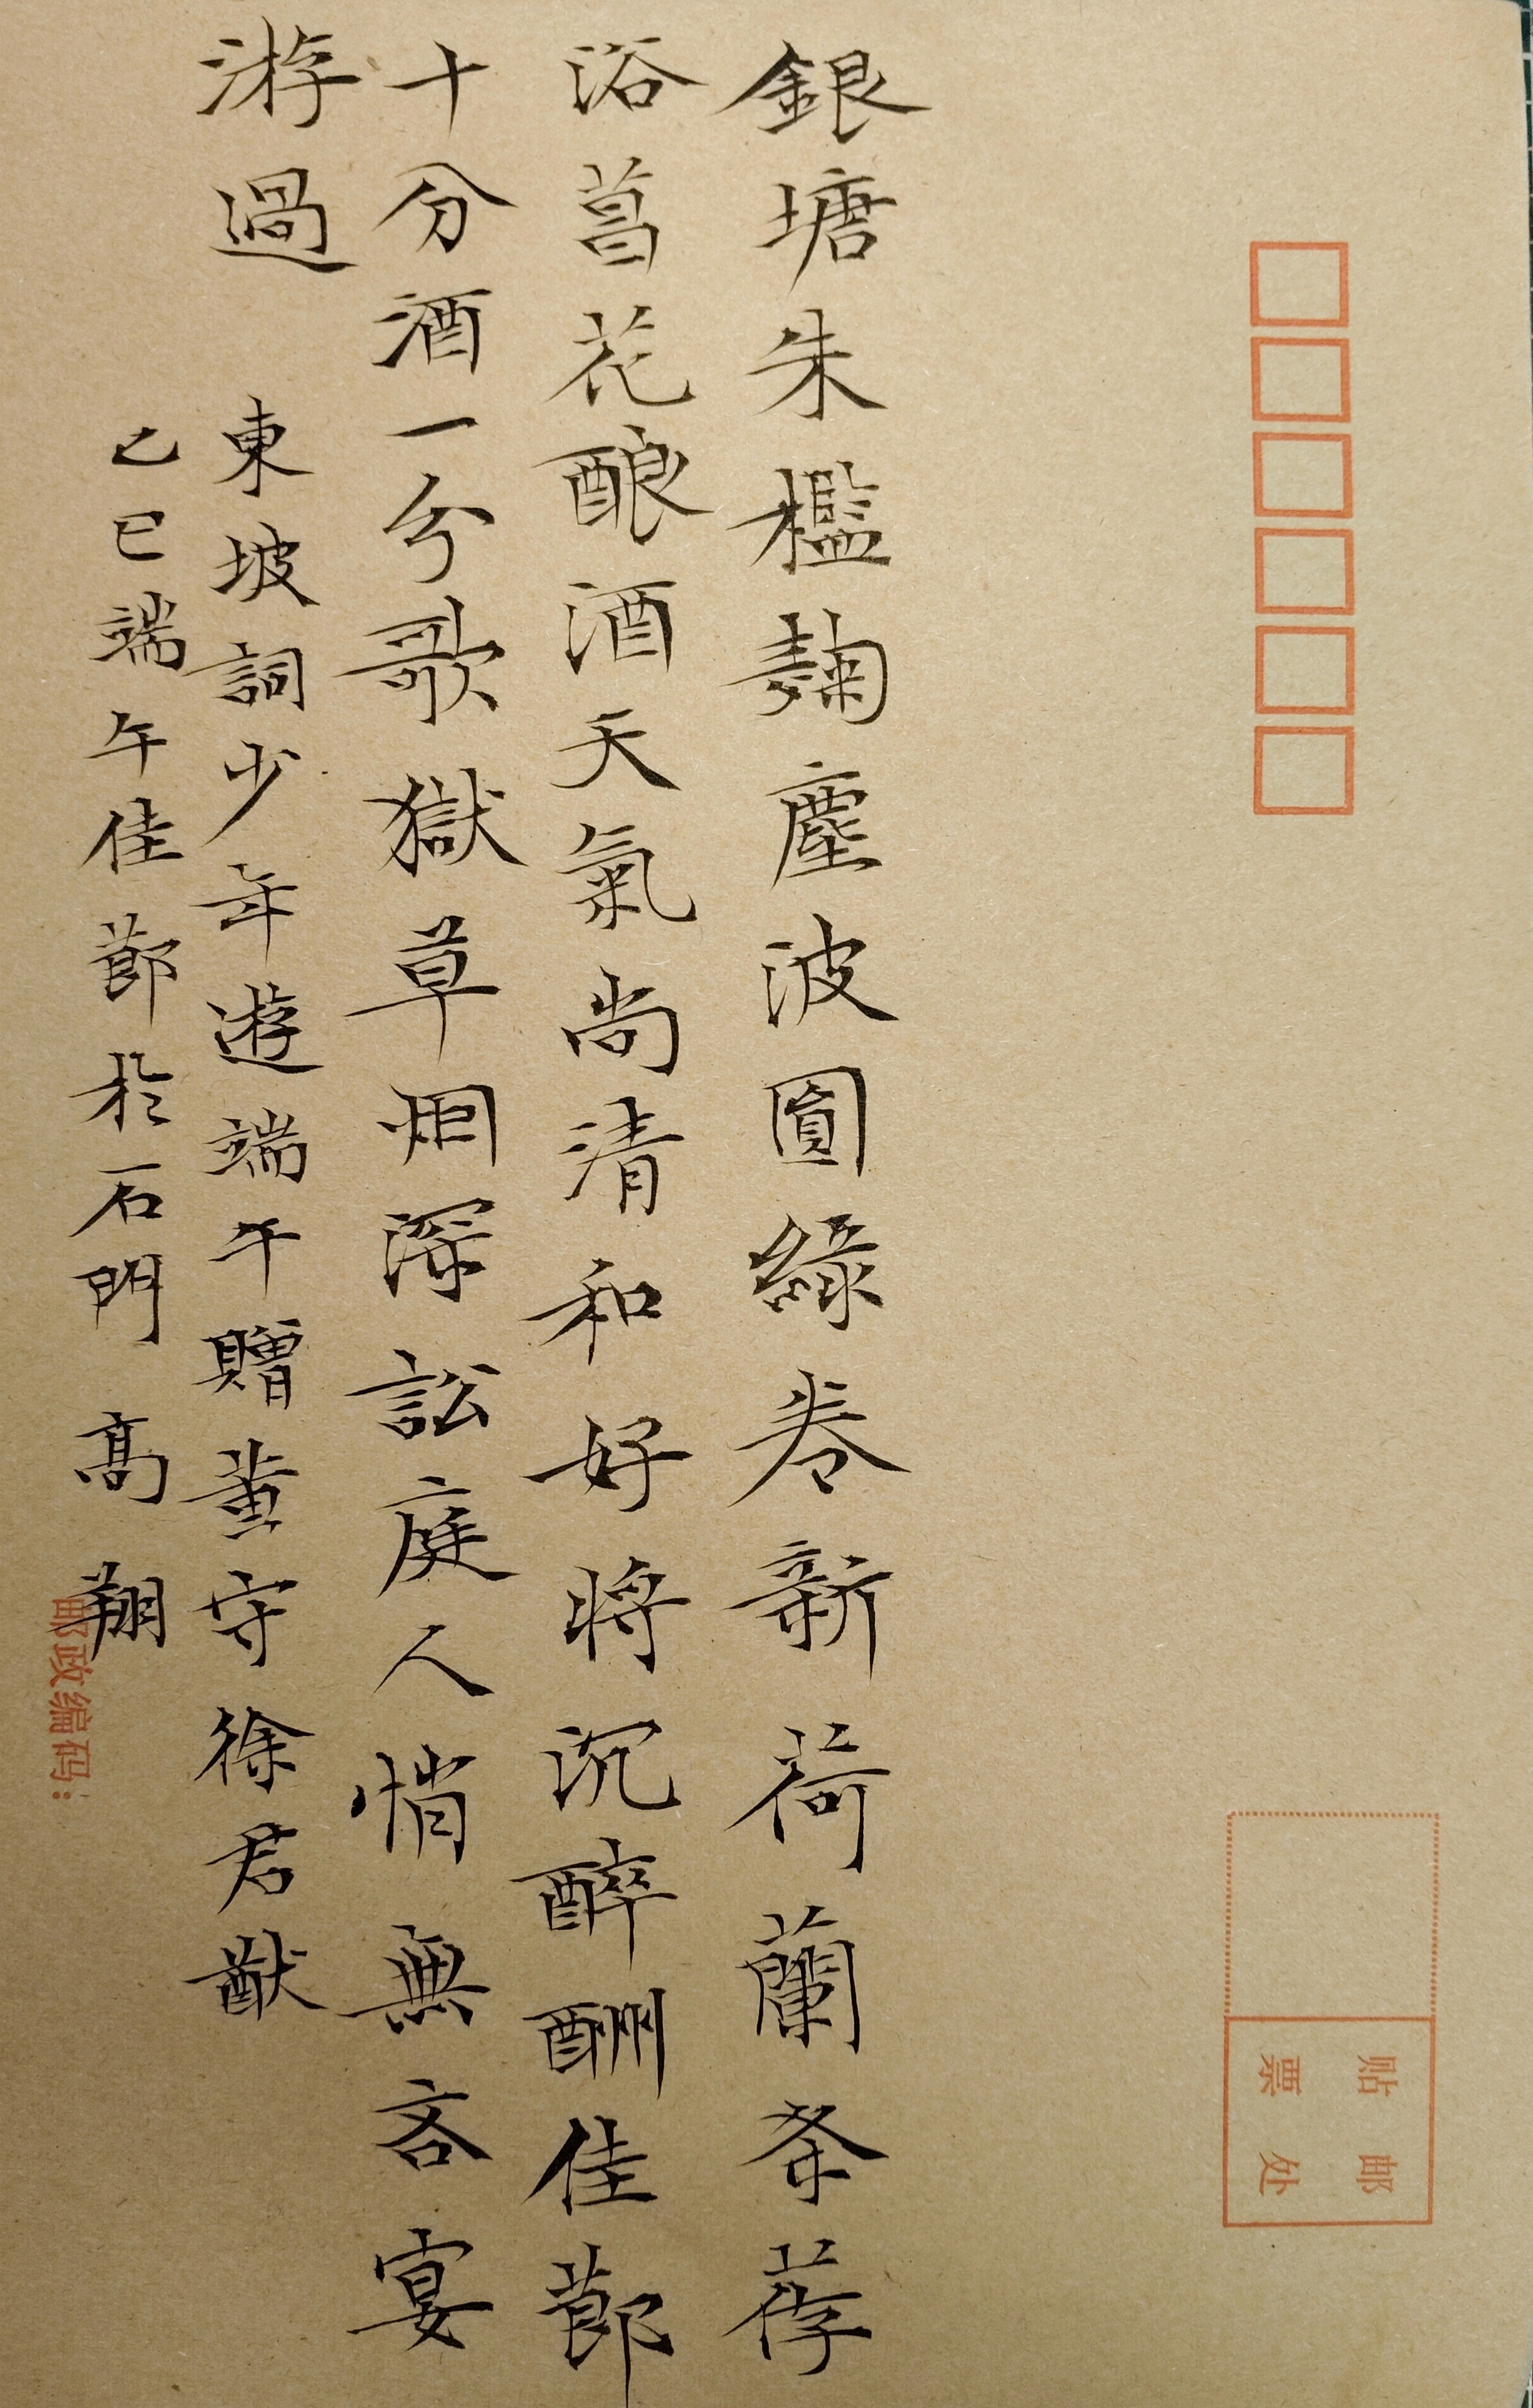 銀塘朱檻麹塵波圓綠卷新荷蘭条荐
浴菖花酿酒天氣尚清和好將沉醉酬佳莭
十分酒一分歌獄草烟深訟庭人悄無吝宴
游過
東坡詞少年遊端午贈黃守徐君猷
乙巳端午佳莭於石門 高翔
贴邮
票处
邮政编码: